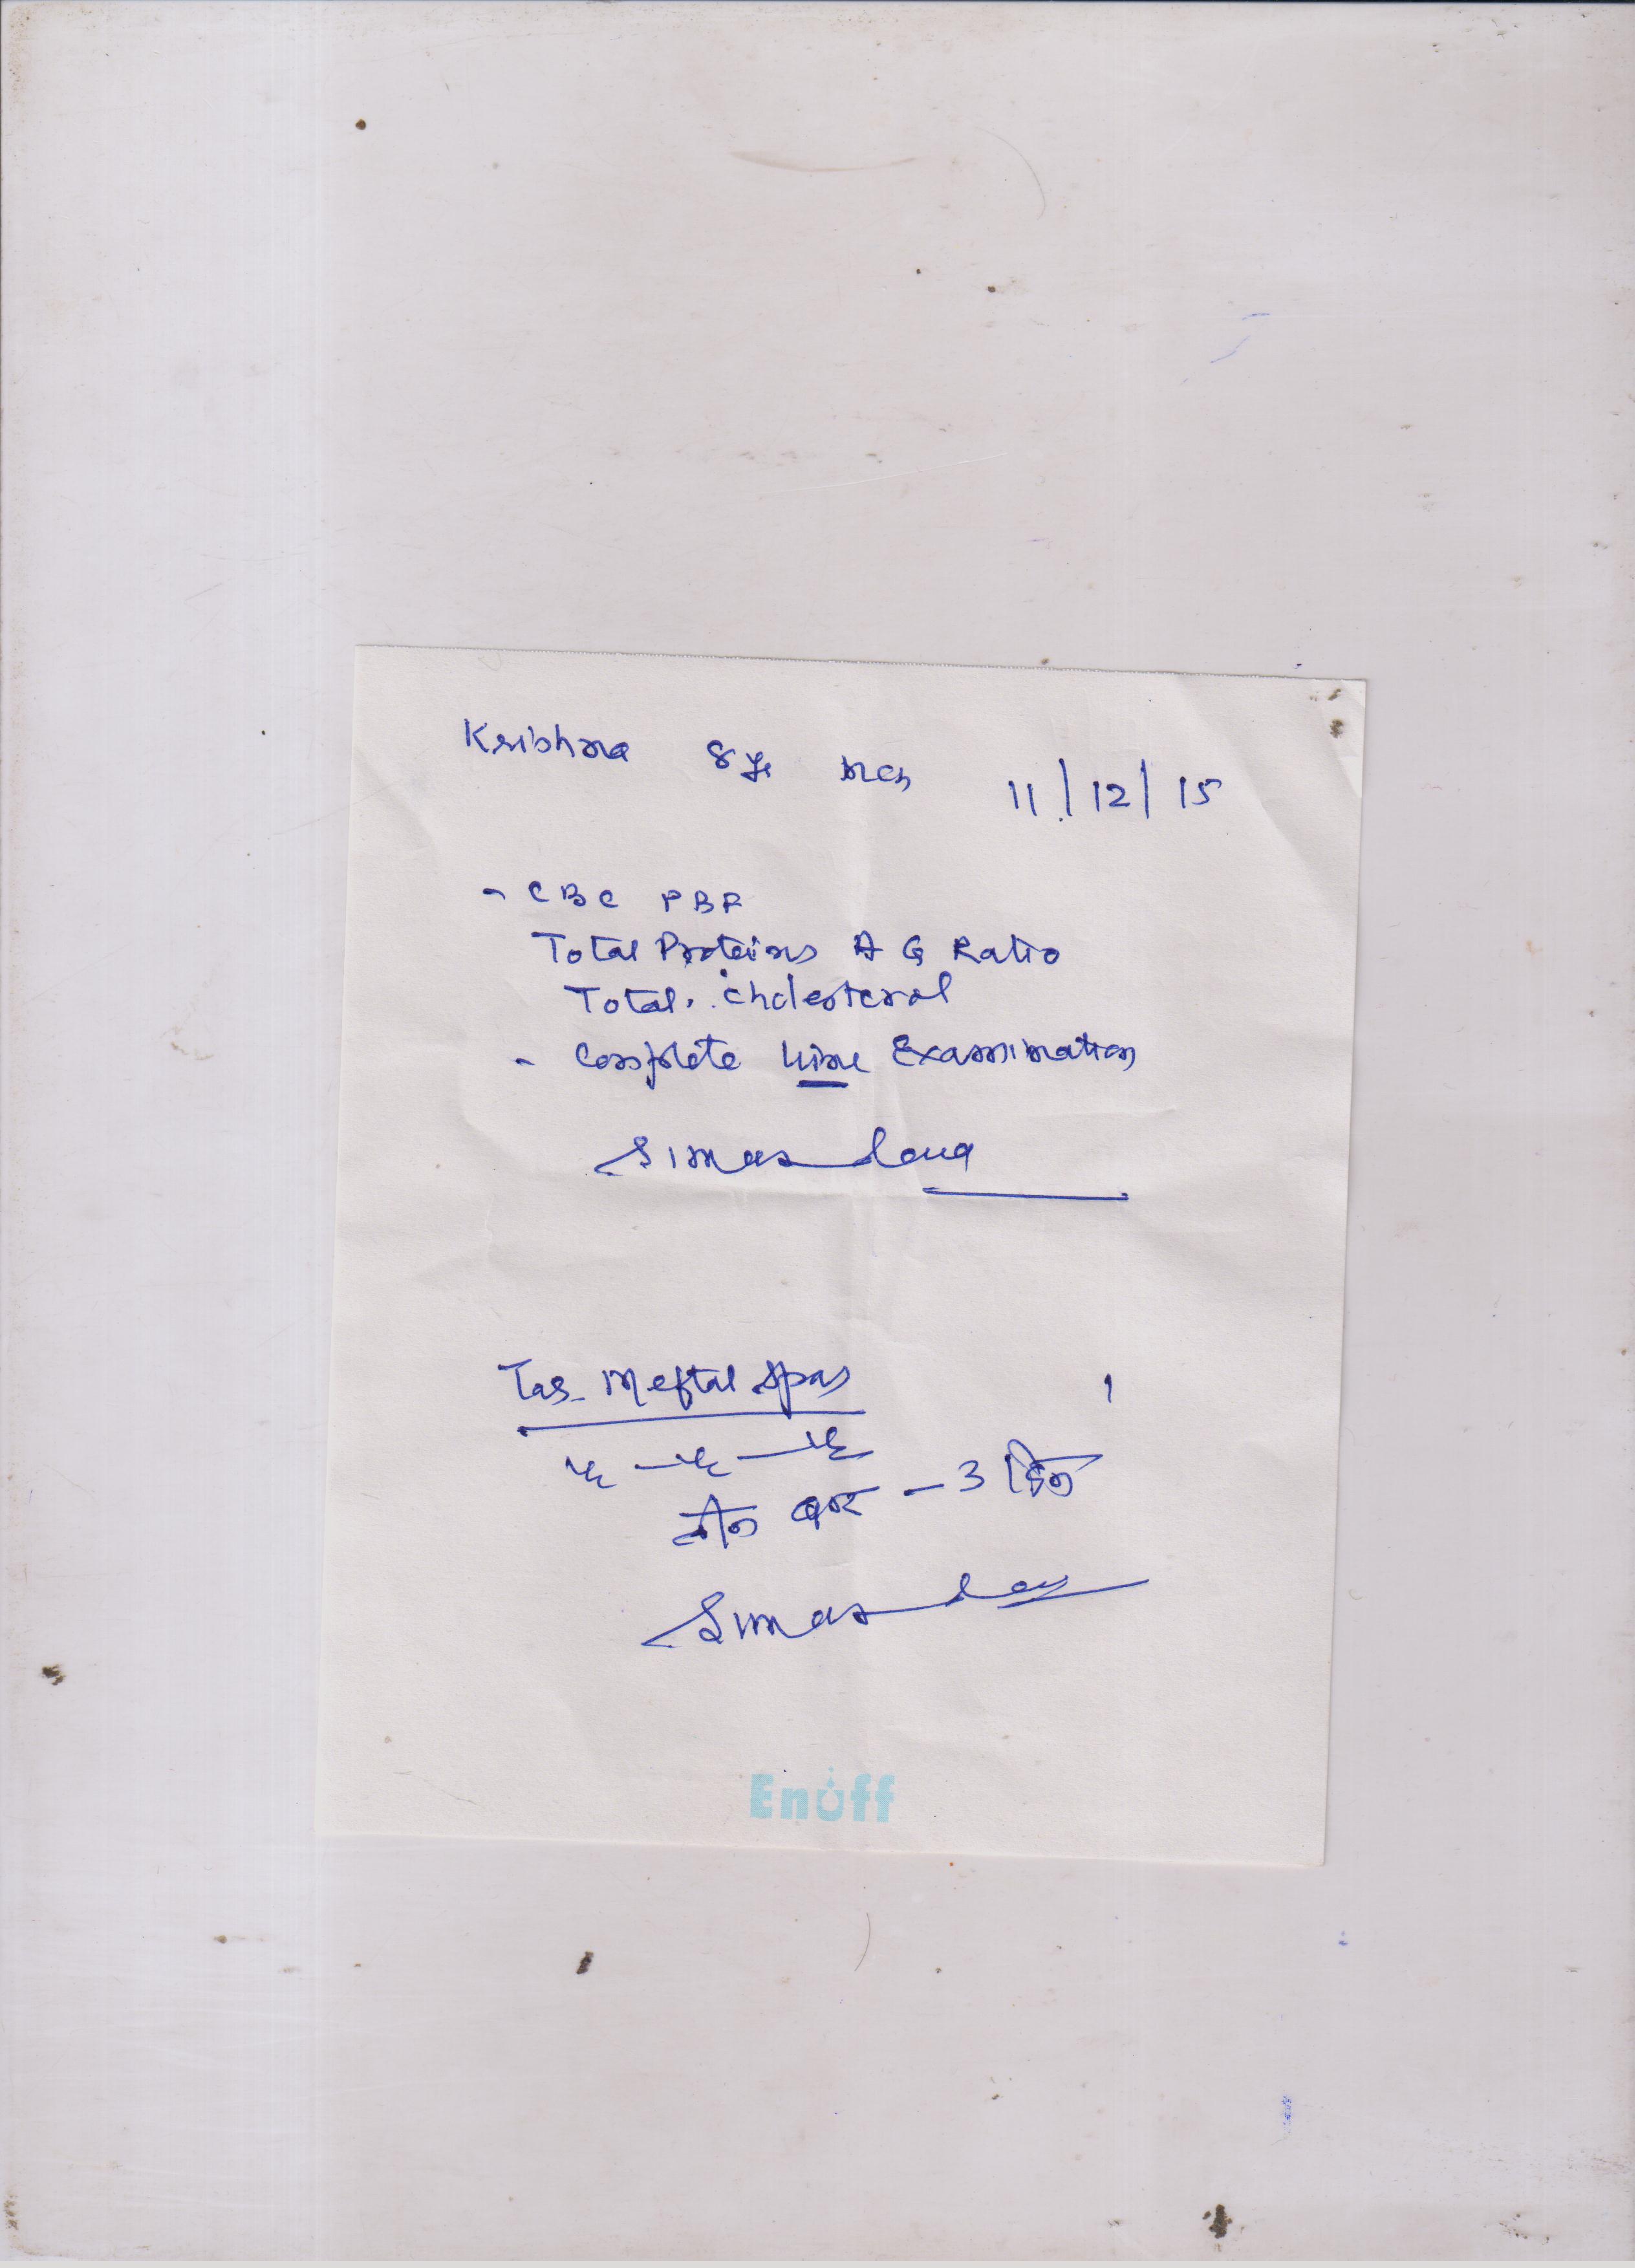 Krishna 8 yr mch 11/12/15
- CBC PBF
Total Proteins A G Ratio
Total. Cholesterol
- Complete Urine Examination
Tab. Meftal Spas
½ — ½ — ½
तीन बार - 3 दिन
Enuff